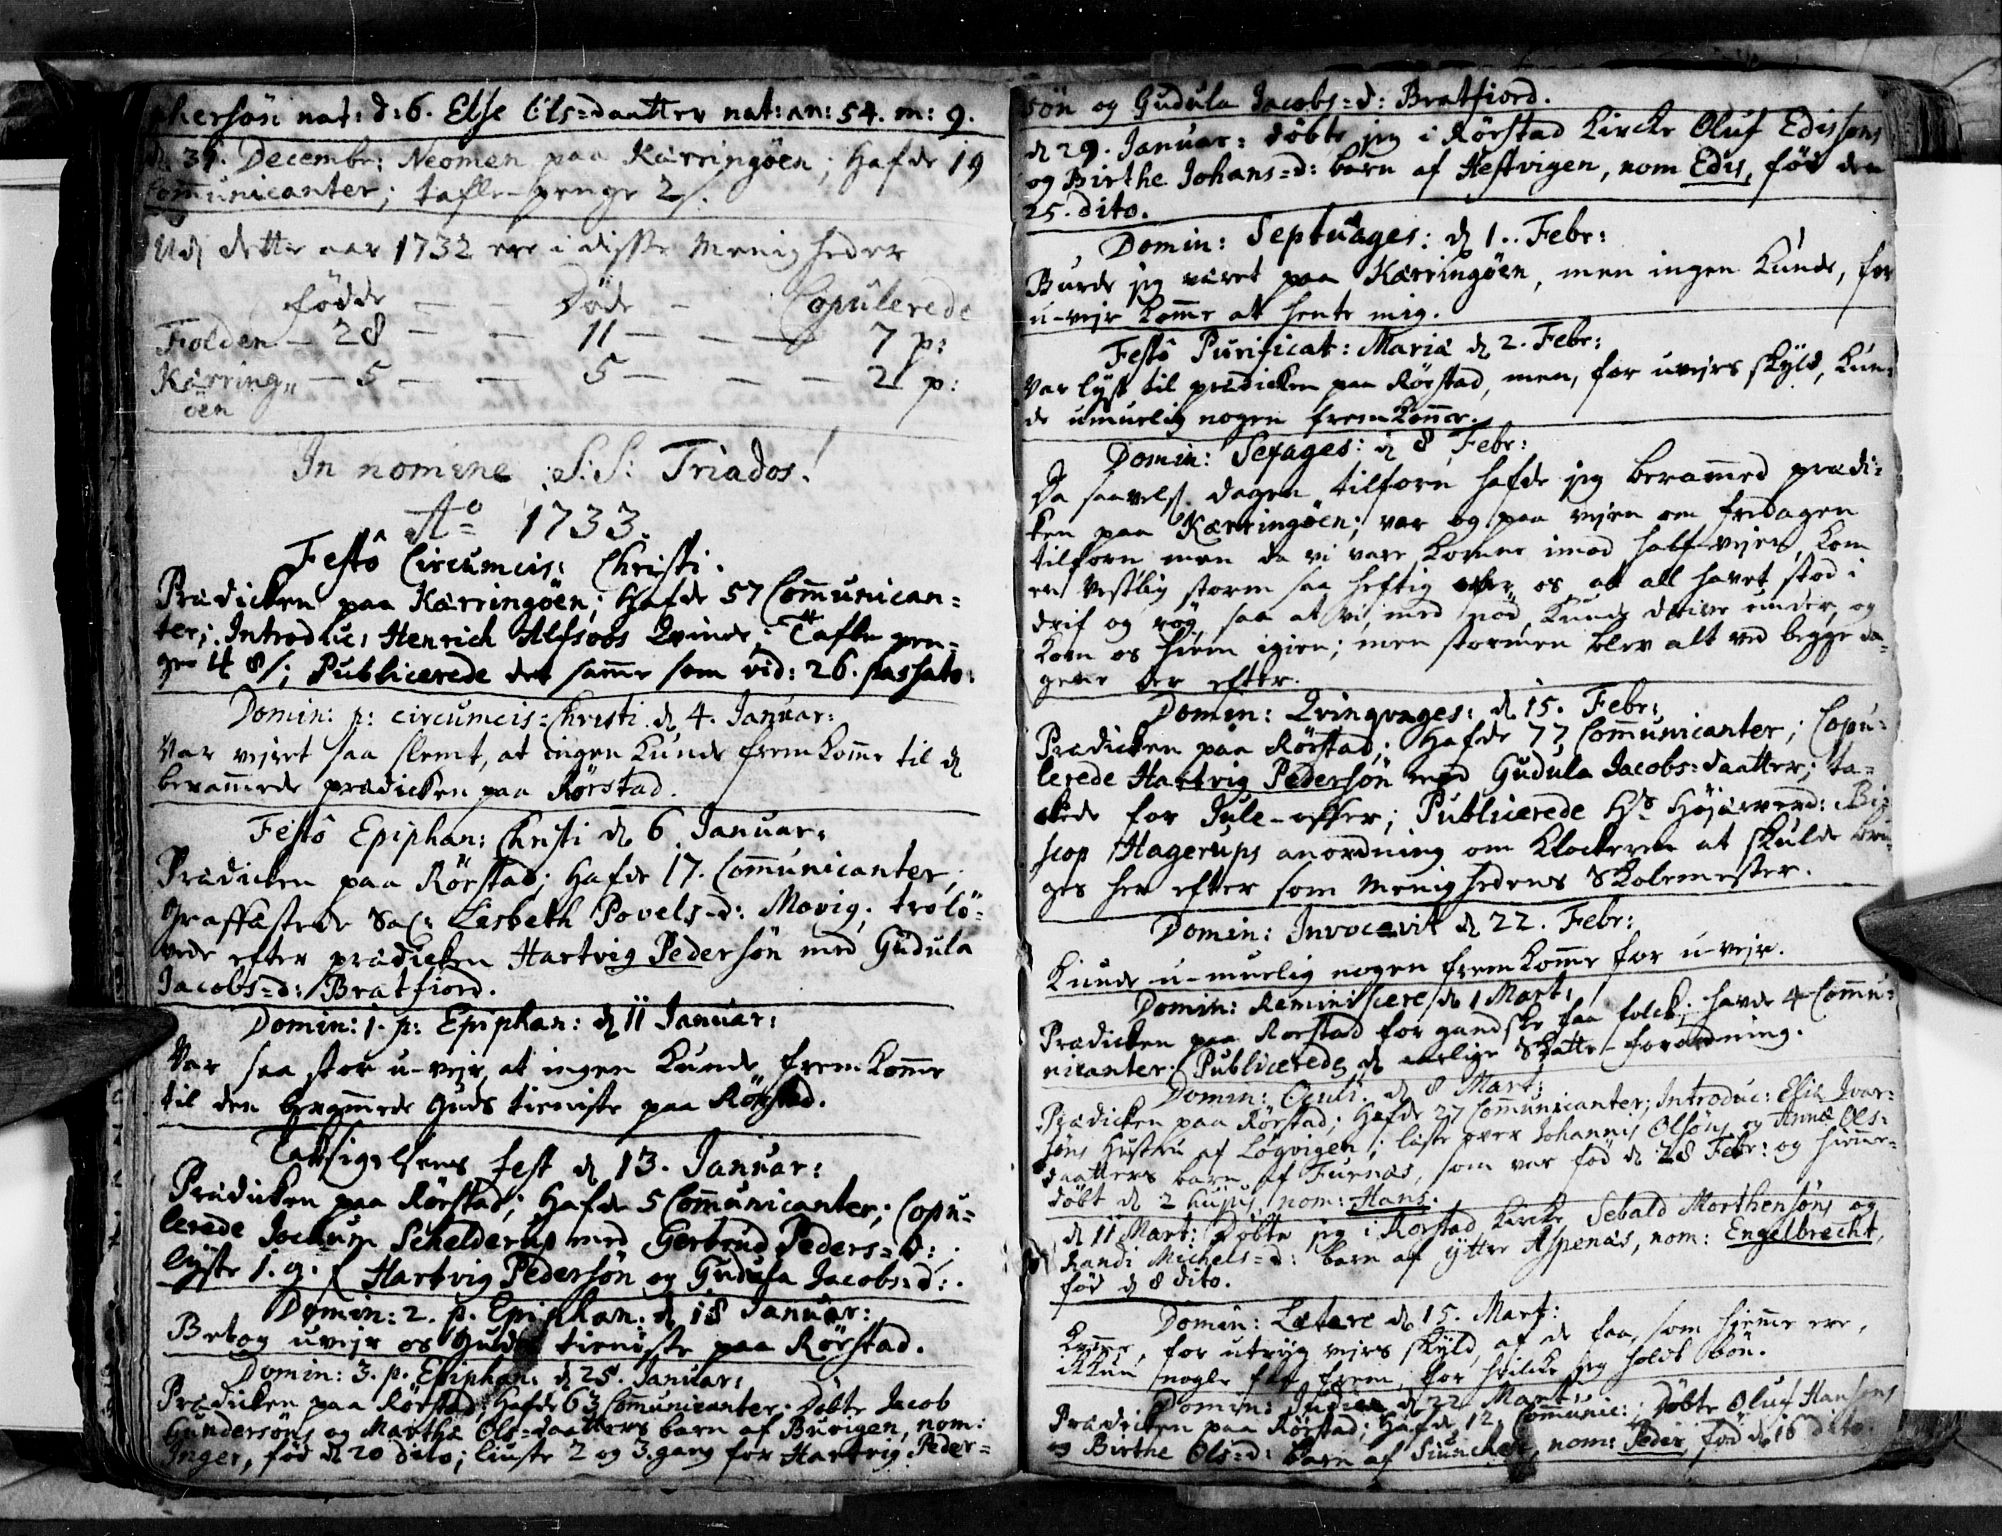 phersön nat: d: 6. Else Ols=daatter nat: an: 54. m: 9.
d 31. Decembr: Neomen paa Kærringöen; Hafde 19
Communicanter; tafle-penge 2 s.
Udj dette aar 1732 ere i disse Menigheder
födde — — Döde — Copulerede
Folden — 28 — — 11 — — — 7 p:
Kærring„ — 5 — — 5 — — — 2 p:
öen
In nomine S: S: Triados!
Ao 1733.
Festô Circumcis: Christi.
Prædicken paa Kærringöen; Hafde 57 Communican=
ter; Introduc: Henrich Alfsöns Qvinde; Tafle pen=
ge 4 8 s; Publicerede det samme som vid: 26. passato.
Domin: p: circumcis=Christi d 4. Januar:
Var vejret saa slemt, at ingen Kunde frem komme til d
berammede prædicken paa Rörstad.
Festô Epiphan: Christi d 6. Januar:
Prædicken paa Rörstad; Hafde 17. Communicanter,
Graffæstede Sal: Lisbeth Povels=d: Movig; trolö=
vede efter prædicken Hartvig Pedersön med Gudula
Jacobs=d: Bratfiord.
Domin: 1. p: Epiphan: d 11 Januar:
Var saa stor u-vejr at ingen Kunde frem komme
til den berammede Guds tieniste paa Rörstad.
Taksigelsens fest d 13. Januar:
Prædicken paa Rörstad; Hafde 5 Communicanter; Copu=
lerede Jochum Schelderup med Gertrud Peders=d:;
lyste 1. g. f Hartvig Pedersön og Gudula Jacobs=d:.
Domin: 2. p. Epiphan: d 18 Januar:
Betog uvejr os Guds tieniste paa Rörstad.
Domin: 3. p. Epiphan: d 25. Januar:
Prædicken paa Rörstad; Hafde 63 Communicanter. Döbte Jacob
Gundersöns og Marthæ Ols=daatters barn af Buvigen, nom:
Inger, föd d 20 dito; liuste 2 og 3 gang for Hartvig Peder=
sön og Gudula Jacobs=d: Bratfiord.
d 29. Januar: döbte jeg i Rörstad Kircke Oluf Edissöns
og Birthe Johans=d: barn af Hestvigen, nom Edis, föd den
25. dito.
Domin: Septuages: d 1. Febr:
Burde jeg været paa Kærringöen, men ingen Kunde, for
u-vejr komme at hente mig.
Festô Purificat: Mariæ d 2. Febr:
Var lyst til prædicken paa Rörstad, men, for uvejrs skyld, Kun=
de umuelig nogen frem komme.
Domin: Sexages: d 8 Febr:
Da saavelsom dagen tilforn hafde jeg berammed prædi=
ken paa Kærringöen; var og paa vejen om fredagen
tilforn men da vi vare komne imod half-vejen, kom
en Vestlig storm saa heftig over os at all havet stod i
drif og rög saa at vi, med nöd, Kunde drive under, og
kom os hiem igien; men stormen blev alt ved begge da=
gene der efter.
Domin: Qvinqvages: d 15. Febr:
Prædicken paa Rörstad; Hafde 77 Communicanter; Copu=
lerede Hartvig Pedersön med Gudula Jacobs=daatter; ta=
ckede for Jule-offer; Publicerede Hs Höjærverd: Bi=
scop Hagerups anordning om Klockerne at skulde bru=
ges her efter som Menighedens Skolemester.
Domin: Invocavit d 22. Febr:
Kunde u-muelig nogen frem komme for u-vejr.
Domin: Reminiscere d 1 Mart:
Prædicken paa Rorstad for gandske faa folck; havde 4 Commu=
nicanter. Publicerede d aarlige Skatte-forordning.
Domin: Oculi. d 8 Mart:
Prædicken paa Rörstad; Hafde 27 Communicanter; Introduc: Elie Ivar=
söns Hustru af Lögvigen; læste over Johannis Olsöns og Annæ Ols=
daatters barn af Furnæs, som var föd d 28 Febr: og hieme=
döbt d 2 hujus, nom: Hans.
d 11 Mart: Döbte jeg i Rorstad Kircke, Sebald Morthensöns og
Randi Michels=d: barn af ytter Aspenæs, nom: Engelbrecht,
föd d 8 dito.
Domin: Lætare d 15. Mart:
Komme, for utryg vejrs skyld, af de faa, som hjemme ere,
ickun nogle faa frem, for hvilcke jeg holdt bön.
Domin: Judica d 22 Mart:
Prædicken paa Rörstad; Hafde 12 Communic:; Döbte Oluf Hansöns
og Birthe Ols=d: barn af Siuncher, nom: Peder, föd d 16 dito.